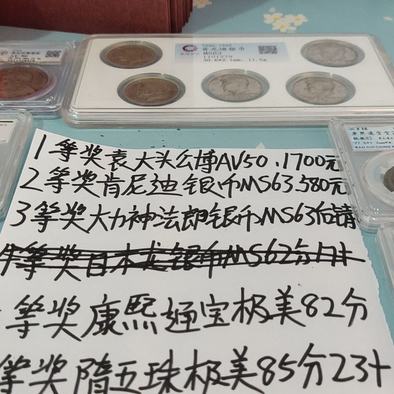 肯尼迪银币
MS63
30.6*2.1mm, 11.5g
1等奖袁大头公博AV50.1700元
2等奖肯尼迪银币MS63.580元
3等奖大力神法郎银币MS63伍請
等奖日本龙银币MS62分
等奖康熙通宝极美82分
等奖隋五珠极美85分23